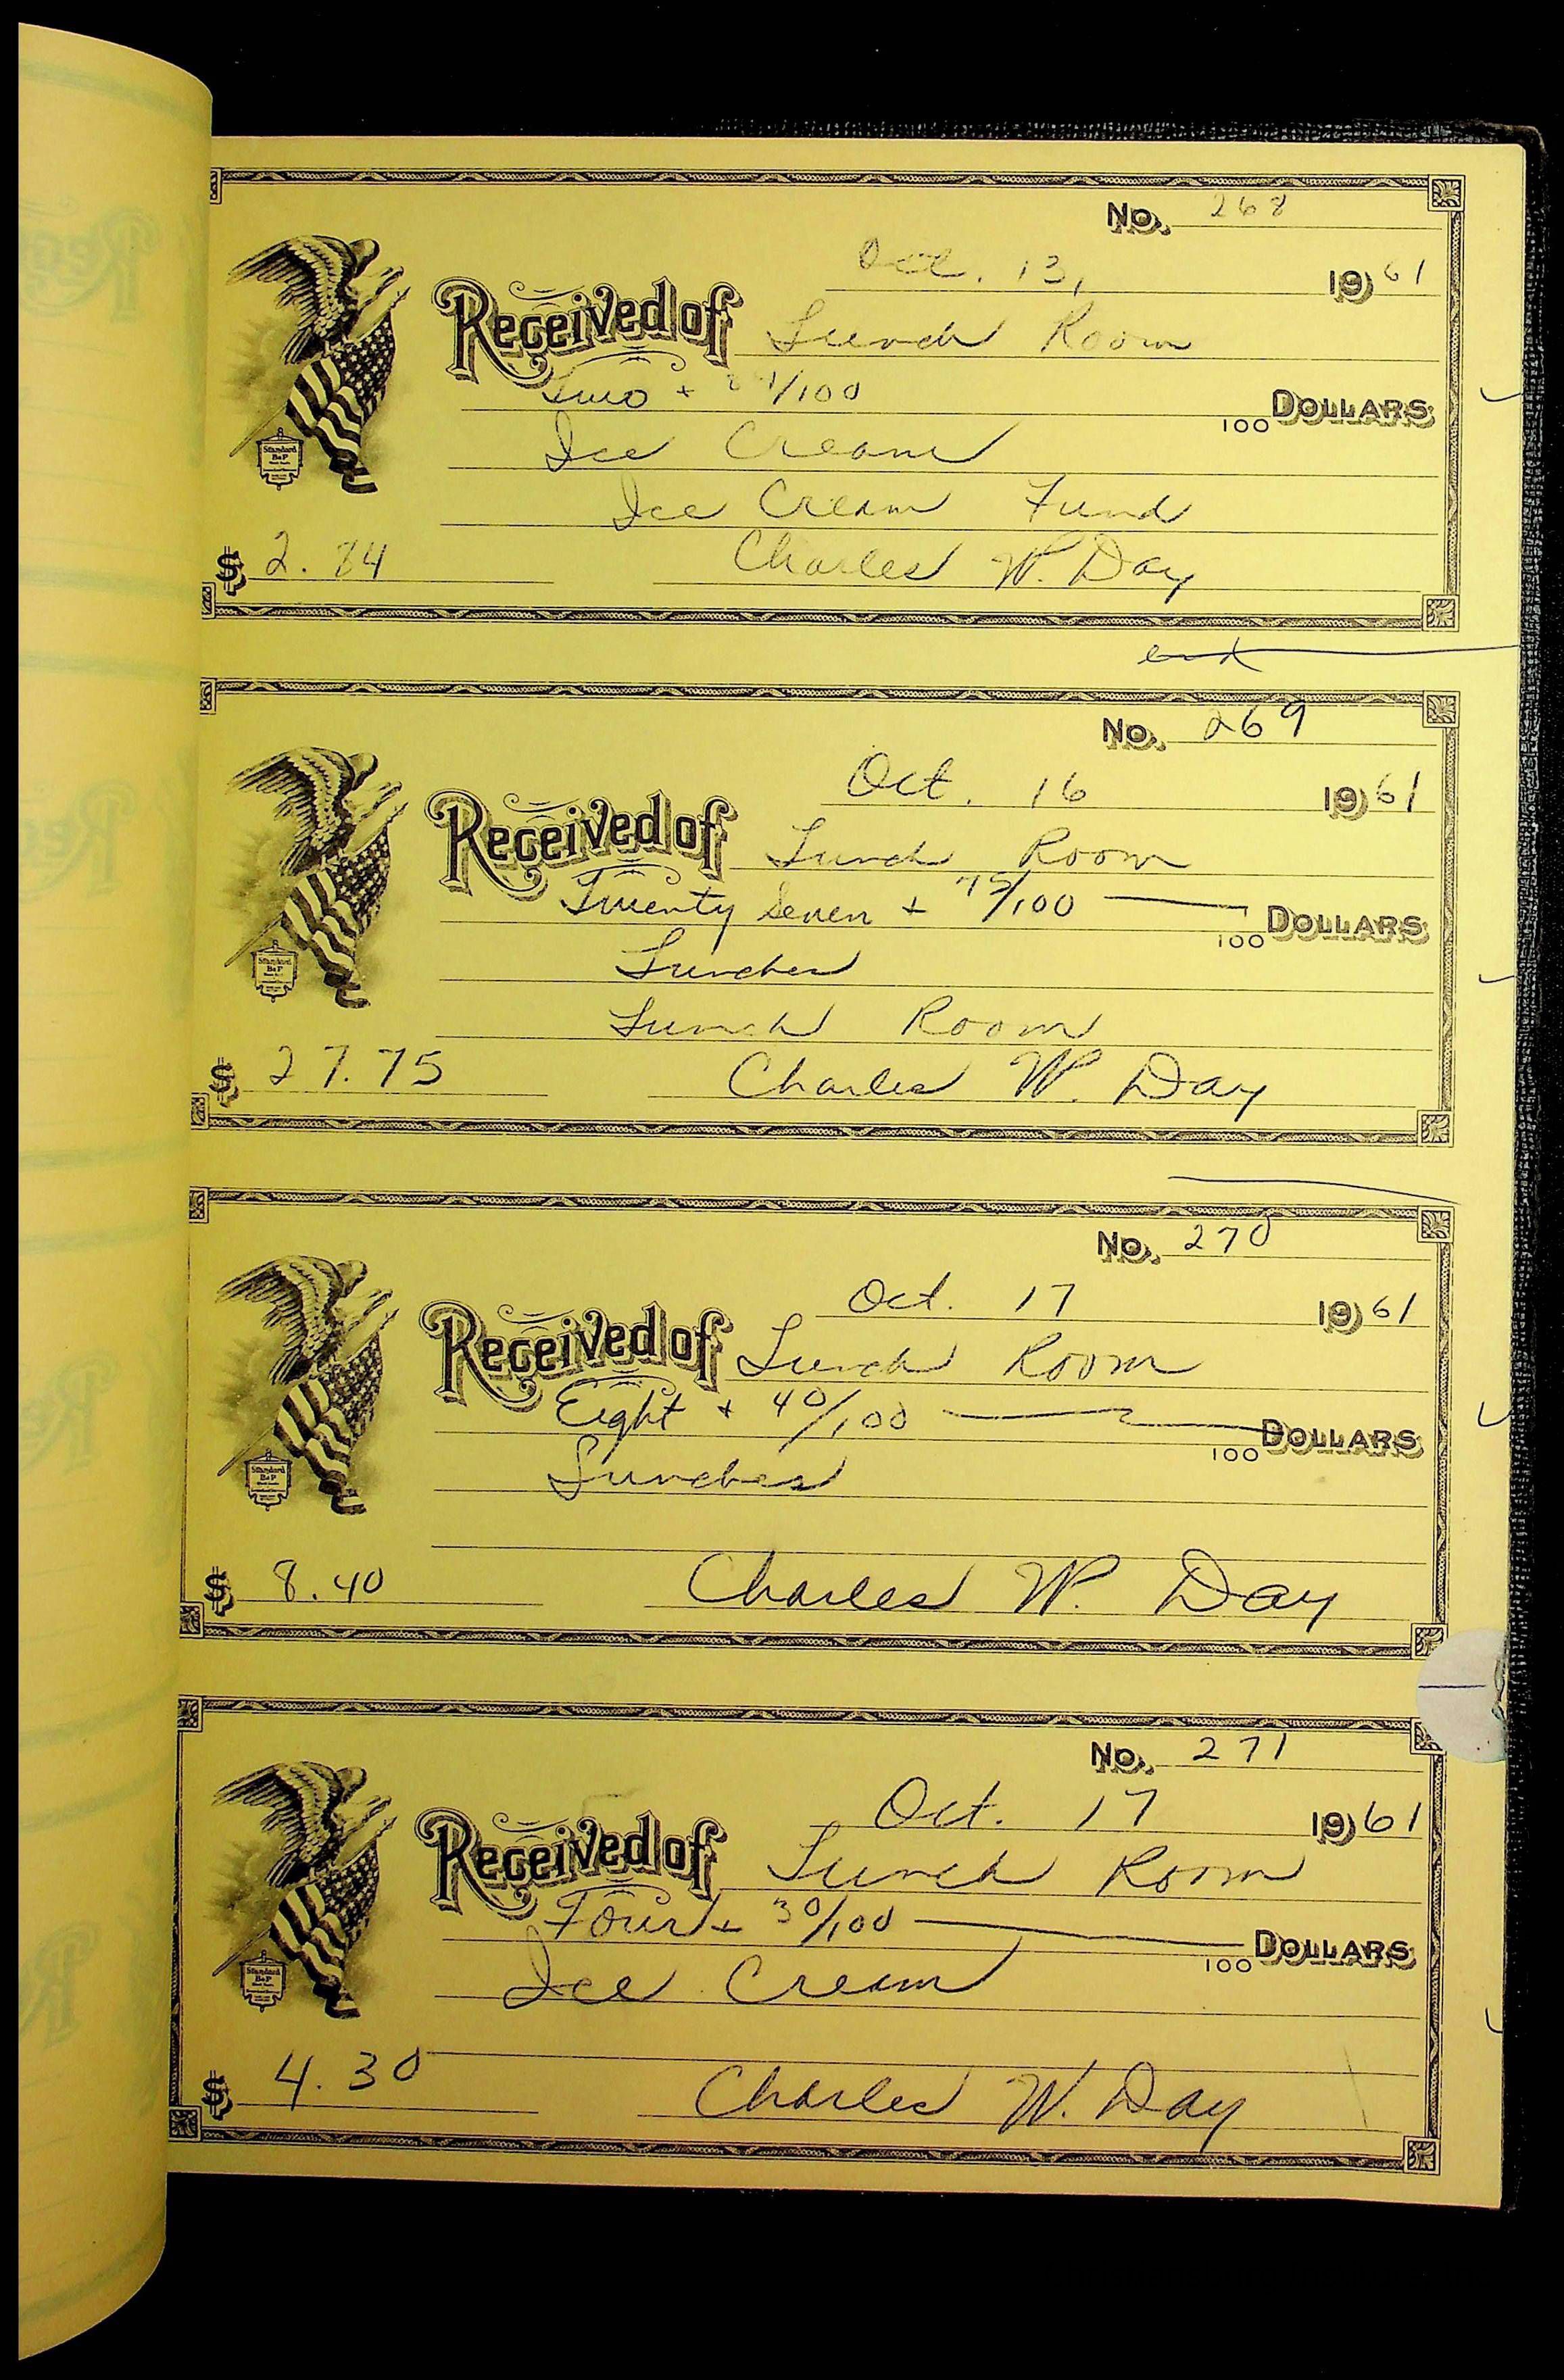 No. 268
Oct. 13, 1961
Received of Lunch Room
Two + 84/100 100 DOLLARS
Ice Cream
Ice Cream Fund
Standard B&P
$ 2.84 Charles W. Day
end
No. 269
Oct. 16 1961
Received of Lunch Room
Twenty Seven + 75/100 100 DOLLARS
Lunches
Standard B&P
Lunch Room
$ 27.75 Charles W. Day
No. 270
Oct. 17 1961
Received of Lunch Room
Eight + 40/100 100 DOLLARS
Lunches
Standard B&P
$ 8.40 Charles W. Day
No. 271
Oct. 17 1961
Received of Lunch Room
Four + 30/100 100 DOLLARS
Ice Cream
Standard B&P
$ 4.30 Charles W. Day